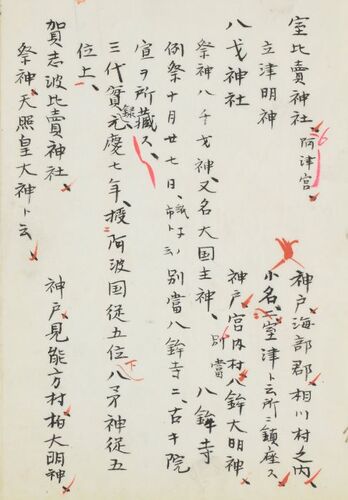 室比賣神社 阿津宮 神戸海部郡相川村之内
立津明神 小名ニ室津ト云所ニ鎮座ス
八戈神社 神戸宮内村八鉾大明神
祭神八千戈神、又名大国主神、別當 八鉾寺
例祭十月廿七日、 別當八鉾寺ニ、古キ院
宣ヲ所藏ス、
三代實録、元慶七年、授阿波国從五位下八矛神從五
位上、
賀志波比賣神社 神戸見能方村柏大明神
祭神天照皇大神ト云